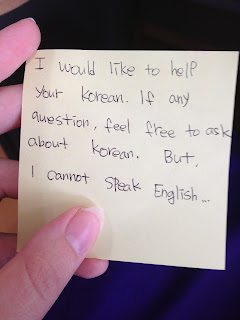 I would like to help
your korean. If any
question, feel free to ask
about korean. But,
I cannot speak English...